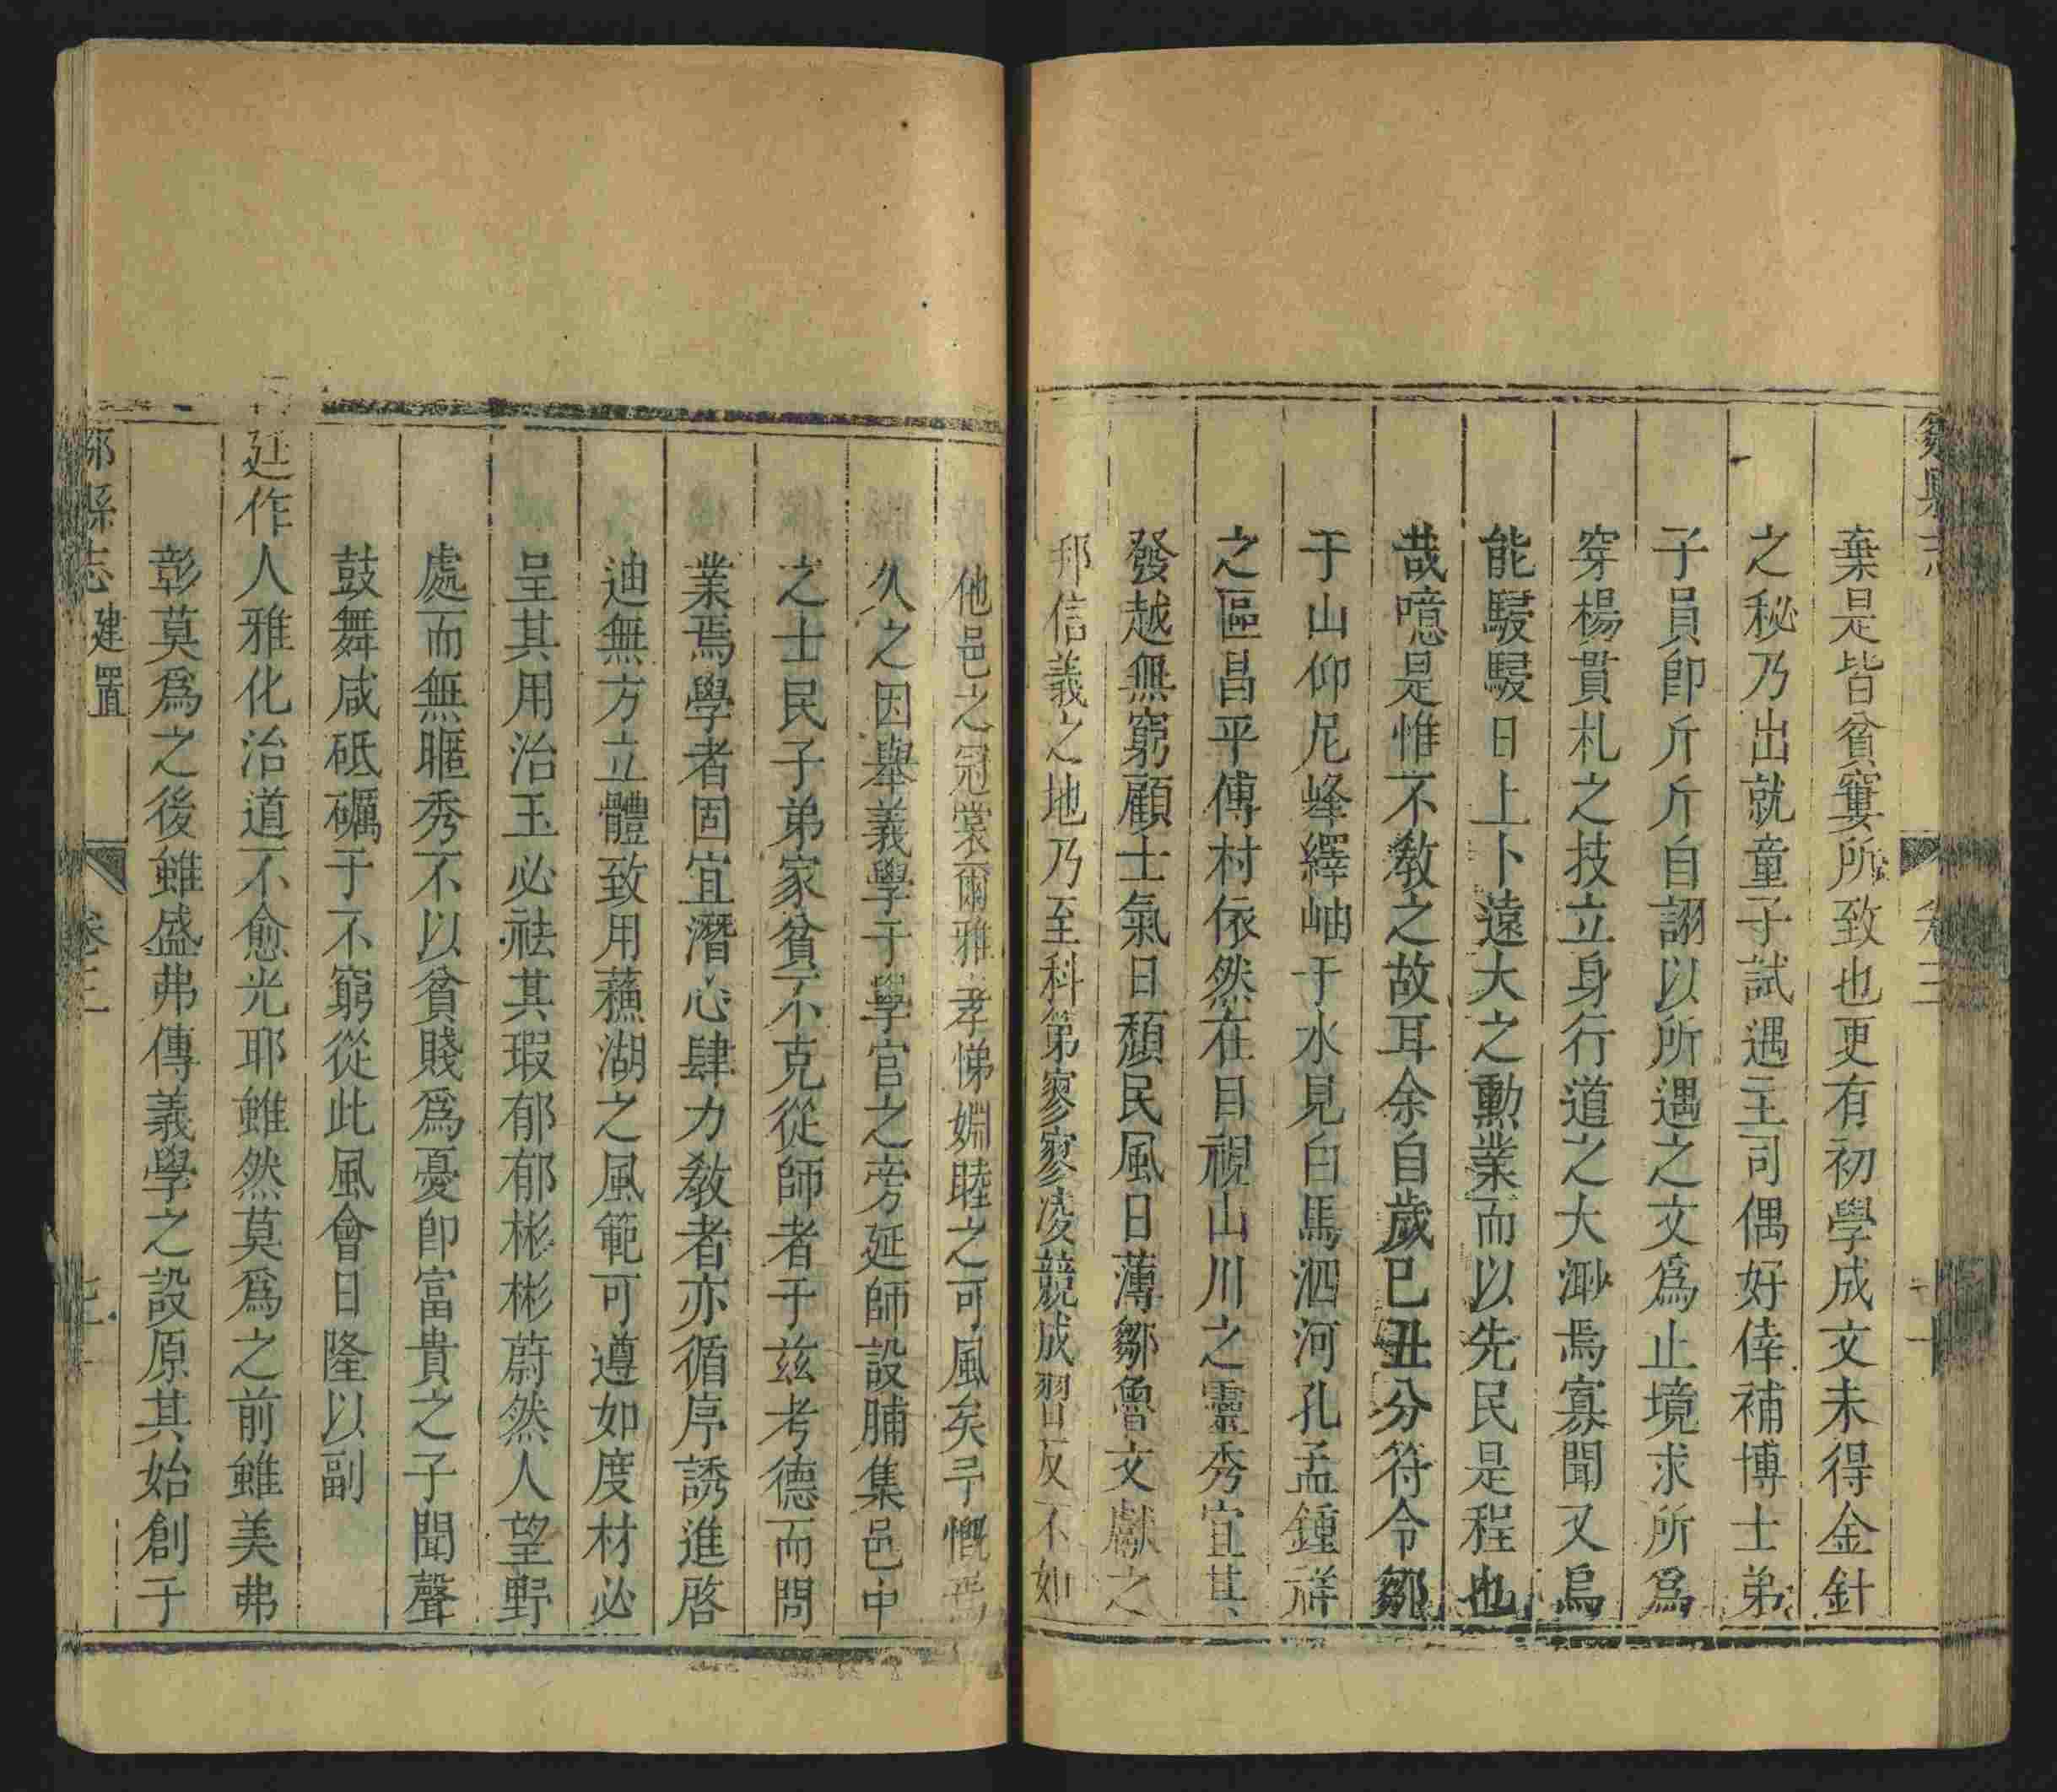 鄒縣志
卷三
棄是皆貧窶所致也更有初學成文未得金針
之秘乃出就童子試遇主司偶好倖補博士弟
子員卽斤斤自詡以所遇之文爲止境求所爲
穿楊貫札之技立身行道之大渺焉寡聞又烏
能駸駸日上卜遠大之勳業而以先民是程也
哉噫是惟不教之故耳余自歲已丑分符令鄒
于山仰尼峰繹岫于水見白馬泗河孔孟鍾祥
之區昌平傅村依然在目視山川之靈秀宜其
發越無窮顧士氣日頹民風日薄鄒魯文獻之
邦信義之地乃至科第寥寥凌競成習反不如
他邑之冠裳爾雅孝悌婣睦之可風矣予慨焉
久之因舉義學于學官之旁延師設脯集邑中
之士民子弟家貧不克從師者于兹考德而問
業焉學者固宜潛心肆力教者亦循序誘進啓
迪無方立體致用蘓湖之風範可遵如度材必
呈其用治玉必祛其瑕郁郁彬彬蔚然人望野
處而無暱秀不以貧賤爲憂卽富貴之子聞聲
鼓舞咸砥礪于不窮從此風會日隆以副
廷作人雅化治道不愈光耶雖然莫爲之前雖美弗
彰莫爲之後雖盛弗傳義學之設原其始創于
鄒縣志
建置
卷三